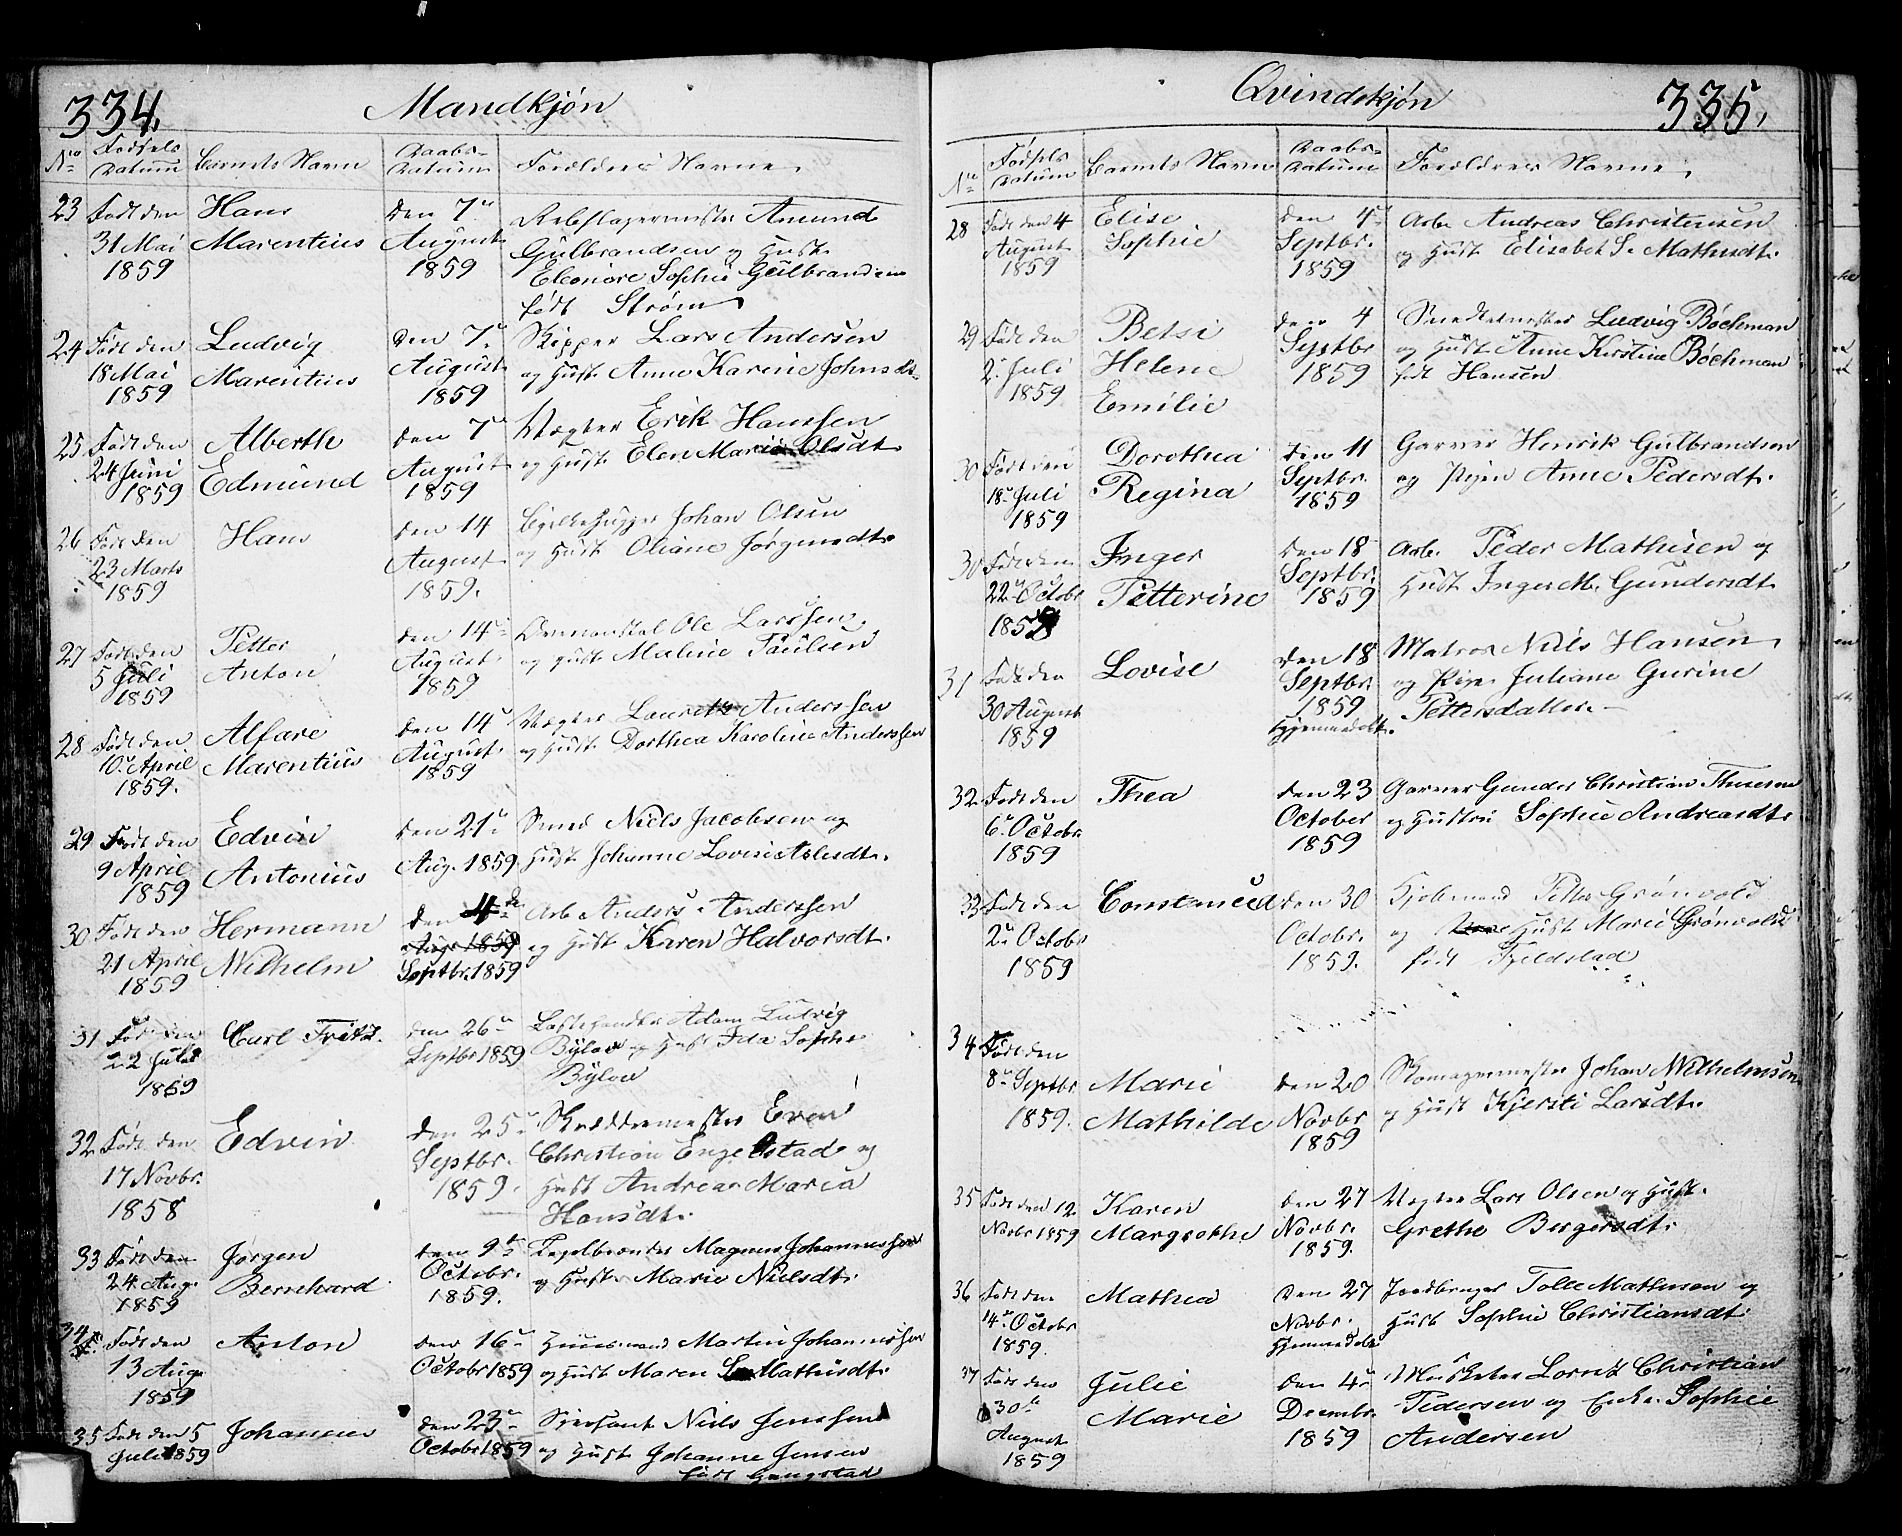 334.
Mandkjøn
No
Fødsels Datum
Barnets Navn
Daabs-Datum
Forældres Navne.
23
Født den
31 Mai
1859
Hans
Marentius
den 7de
August
1859
Rebslagermester Amund
Gulbrandsen og Hustr
Elenore Sophie Gulbrandsen
født Strøm
24
Født den
18 Mai
1859
Ludvig
Marentius
den 7de
August
1859
Skipper Lars Andersen
og Hust. Anne Karine Johnsdt.
25
Født den
24 Juni
1859
Alberth
Edmund
den 7de
August
1859
Vægter Erik Hanssen
og Hust. Elen Marie Olsdt.
26
Født den
23 Marts
1859
Hans
den 14
August
1859.
Johan Olsen
og Hust Oliane Jørgensdt.
27
Født den
5 Juli
1859
Petter
Anton
den 14de
August
1859
Ole Larssen
og Hust. Maline Paulsen
28
Født den
10de April
1859.
Alfare
Marentius
den 14de
August
1859
Vægter Lauretz Anderssen
og Hust. Dorthea Karoline Anderssen
29
Født den
9 April
1859
Edvin
Antonius
den 21de
Aug. 1859
Smed Niels Jacobsen og
Hust. Johanne Lovise Aslesdt.
30
Født den
21 April
1859
Hermann
Wilhelm
den 4de
Aug. 1859
Septbr. 1859
Arb Anders Anderssen
og Hust Karen Halvorsdt.
31
Født den
22 Juli
1859
Carl Fritz.
den 26de
Septbr 1859
Adam Ludvig
Bülow og Hust Ida Sophie
Bülow
32
Født den
17 Novbr.
1858
Edvin
den 25de
Septbr.
1859.
Skræddermester Even
Christian Engelstad og
Hust Andrea Maria
Hansdt.
33
Født den
24 Aug.
1859
Jørgen
Bernhard
den 9de
Octobr.
1859.
Teglbrænder Magnus Johannessen
og Hust. Marie Nielsdt.
34
Født den
13 Aug.
1859
Anton
den 16de
Octobr 1859
Huusmand Martin Johannessen
og Hust Maren Mathisdt.
35
Født den 5
Juli 1859
Johannes
den 23de
Octobr 1859
Niels Jenssen
og Hust Johanne Jensen
født Gangstad
335.
Qvindekjøn
No
Fødsels Datum
Barnets Navn
Daabs-Datum
Forældres Navne.
28
Født den 4
August
1859
Elise
Sophie
den 4de
Septbr.
1859
Arb. Andreas Christensen
og Hust Elisabet S. Mathisdt.
29
Født den
2. Juli
1859
Betsi
Helene
Emilie
den 4
Septbr
1859
Snedkermester Ludvig Bøchman
og Hust Anne Kirstine Bøchman
født Hansen
30
Født den
18de Juli
1859
Dorothea
Regina
den 11
Septbr.
1859
Garver Henrik Gulbrandsen
og Pigen Anne Pedersdt.
30
Født den
22de Octobr
Inger
Petterine
den 18
Septbr.
1859
Arb. Peder Mathisen og
Hust. Inger M. Gundersdt.
31
Født den
30 August
1859
Lovise
den 18
Septbr.
1859
Hjemmedøbt.
Matros Niels Hansen
og Pigen Juliane Gurine
Pettersdatter.
32.
Født den
6te Octobr.
1859
Thea
den 23
October
1859
Garver Gunder Christian
og Hustru Sophie Andreasdt.
33
Født den
2de Octobr
1859
Constance
den 30
Octobr.
1859.
Kjøbmand Petter Grønvold
og Hust Marie Grønvold
født Fjeldstad
34
Født den
8de Septbr.
1859.
Marie
Mathilde
den 20
Novbr
1859
Skomagermester Johan Wilhelmsen
og Hust Kjersti Larsdt.
35
Født den 12
Novbr 1859
Karen
Margrethe
den 27
Novbr.
1859.
Vægter Lars Olsen og Hust.
Grethe Birgersdt.
36
Født den
14de Octobr
1859.
Mathea
den 27
Novbr.
Hjemmedøbt
Jordbruger Tolle Mathisen og
Hust Sophie Christiansdt.
37
Født den
30te
August
1859
Julie
Marie
den 4de
Decembr.
1859
Musketer Lorentz Christian
Pedersen og Enke. Sophie
Andersen